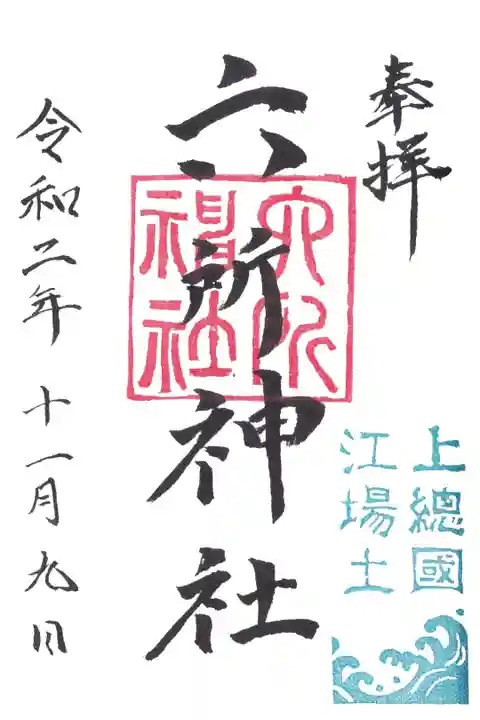 奉拝
上總國
江場土
六所神社
六所
神社
令和二年 十一月九日